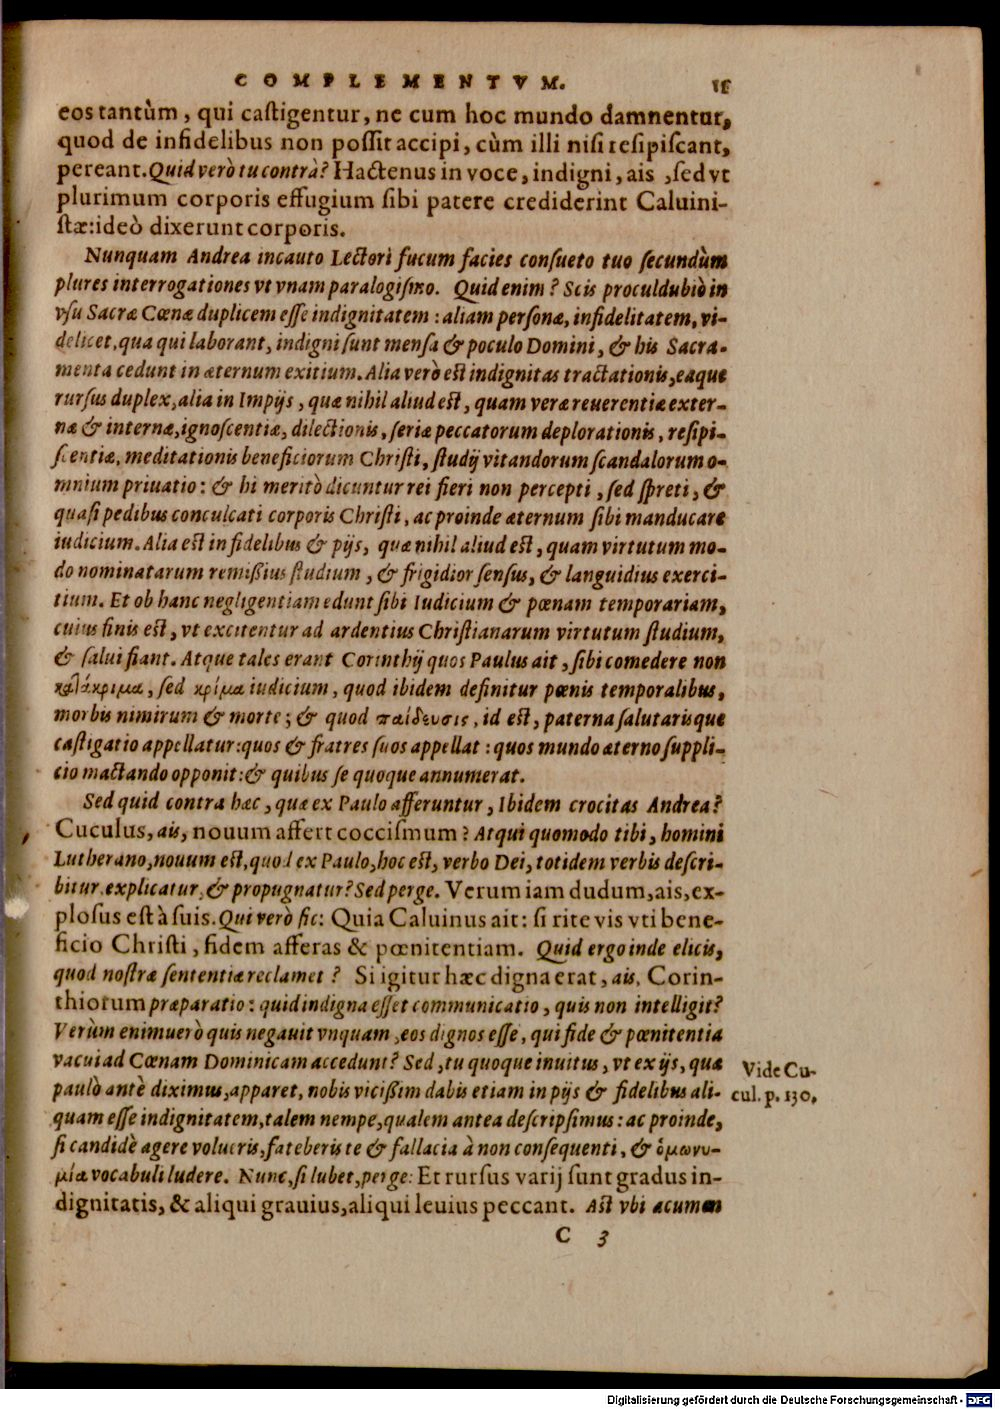 COMPLEMENTVM. 15
eos tantùm, qui castigentur, ne cum hoc mundo damnentur,
quod de infidelibus non possit accipi, cùm illi nisi resipiscant,
pereant. Quid verò tu contrà? Hactenus in voce, indigni, ais, sed vt
plurimum corporis effugium sibi patere crediderint Caluini-
stæ: ideò dixerunt corporis.
Nunquam Andrea incauto Lectori fucum facies consueto tuo secundùm
plures interrogationes vt vnam paralogismo. Quid enim? Scis proculdubiò in
vsu Sacræ Cœnæ duplicem esse indignitatem: aliam personæ, infidelitatem, vi-
delicet, qua qui laborant, indigni sunt mensa & poculo Domini, & his Sacra-
menta cedunt in æternum exitium. Alia verò est indignitas tractationis, eaque
rursus duplex, alia in Impijs, quæ nihil aliud est, quam veræ reuerentiæ exter-
næ & internæ, ignoscentiæ, dilectionis, seriæ peccatorum deplorationis, resipi-
scentiæ, meditationis beneficiorum Christi, studij vitandorum scandalorum o-
mnium priuatio: & hi meritò dicuntur rei fieri non percepti, sed spreti, &
quasi pedibus conculcati corporis Christi, ac proinde æternum sibi manducare
iudicium. Alia est in fidelibus & pijs, quæ nihil aliud est, quam virtutum mo-
do nominatarum remißius studium, & frigidior sensus, & languidius exerci-
tium. Et ob hanc negligentiam edunt sibi Iudicium & pœnam temporariam,
cuius finis est, vt excitentur ad ardentius Christianarum virtutum studium,
& salui fiant. Atque tales erant Corinthij quos Paulus ait, sibi comedere non
κατάκριμα, sed κρίμα iudicium, quod ibidem definitur pœnis temporalibus,
morbis nimirum & morte; & quod παίδευσις, id est, paterna salutarisque
castigatio appellatur: quos & fratres suos appellat: quos mundo æterno suppli-
cio mactando opponit: & quibus se quoque annumerat.
Sed quid contra hæc, quæ ex Paulo afferuntur, Ibidem crocitas Andrea?
Cuculus, ais, nouum affert coccismum? Atqui quomodo tibi, homini
Lutherano, nouum est, quod ex Paulo, hoc est, verbo Dei, totidem verbis descri-
bitur, explicatur, & propugnatur? Sed perge. Verum iam dudum, ais, ex-
plosus est à suis. Qui verò sic: Quia Caluinus ait: si rite vis vti bene-
ficio Christi, fidem afferas & pœnitentiam. Quid ergo inde elicis,
quod nostræ sententiæ reclamet? Si igitur hæc digna erat, ais, Corin-
thiorum præparatio: quid indigna esset communicatio, quis non intelligit?
Verùm enimuerò quis negauit vnquam, eos dignos esse, qui fide & pœnitentia
vacui ad Cœnam Dominicam accedunt? Sed, tu quoque inuitus, vt ex ijs, quæ
paulò antè diximus, apparet, nobis vicißim dabis etiam in pijs & fidelibus ali-
quam esse indignitatem, talem nempe, qualem antea descripsimus: ac proinde,
si candidè agere volueris, fateberis te & fallacia à non consequenti, & ὁμωνυ-
μία vocabuli ludere. Nunc, si lubet, perge: Et rursus varij sunt gradus in-
dignitatis, & aliqui grauius, aliqui leuius peccant. Ast vbi acumen
C 3
Vide Cu-
cul. p. 130,
Digitalisierung gefördert durch die Deutsche Forschungsgemeinschaft - DFG